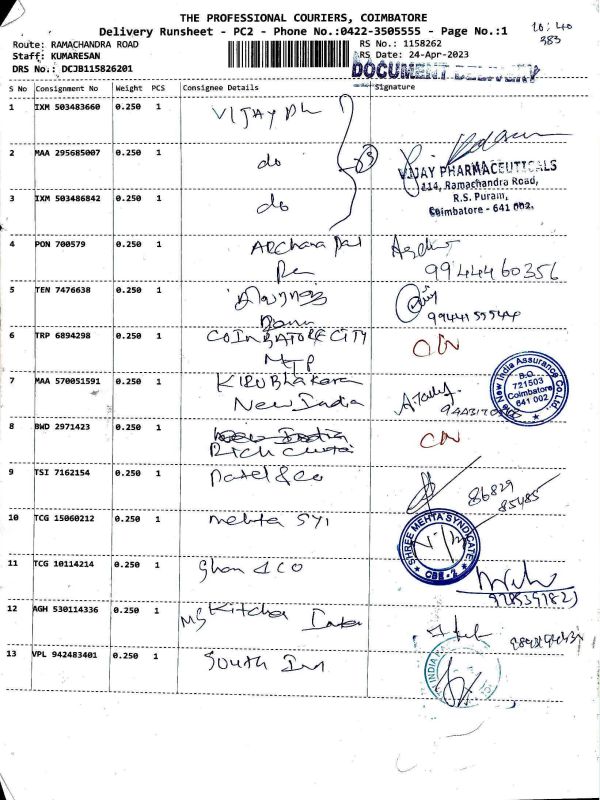 THE PROFESSIONAL COURIERS, COIMBATORE
Delivery Runsheet - PC2 - Phone No.:0422-3505555 - Page No.:1
10:40
383
Route: RAMACHANDRA ROAD
RS No.: 1158262
Staff: KUMARESAN
RS Date: 24-Apr-2023
DRS No.: DCJB115826201
DOCUMENT DELIVERY
S No Consignment No Weight PCS Consignee Details Signature
1 IXM 503483660 0.250 1 VIJAY Ph
2 MAA 295685007 0.250 1 do
VIJAY PHARMACEUTICALS
114, Ramachandra Road,
R.S. Puram,
Coimbatore - 641 002.
3 IXM 503486842 0.250 1 do
4 PON 700579 0.250 1
9944460356
5 TEN 7476638 0.250 1
6 TRP 6894298 0.250 1 COIMBATORE CITY
MTP
7 MAA 570051591 0.250 1 KIRUBhakara
New India
The New India Assurance Co. Ltd.
B.O.
721503
Coimbatore
641 002
8 BWD 2971423 0.250 1 New India
9 TSI 7162154 0.250 1 Patel & co
86829
85485
10 TCG 15060212 0.250 1 mehta SYI
SHREE MEHTA SYNDICATE
CBE - 2
11 TCG 10114214 0.250 1
12 AGH 530114336 0.250 1 MS Kitchen India
13 VPL 942483401 0.250 1 South Ind